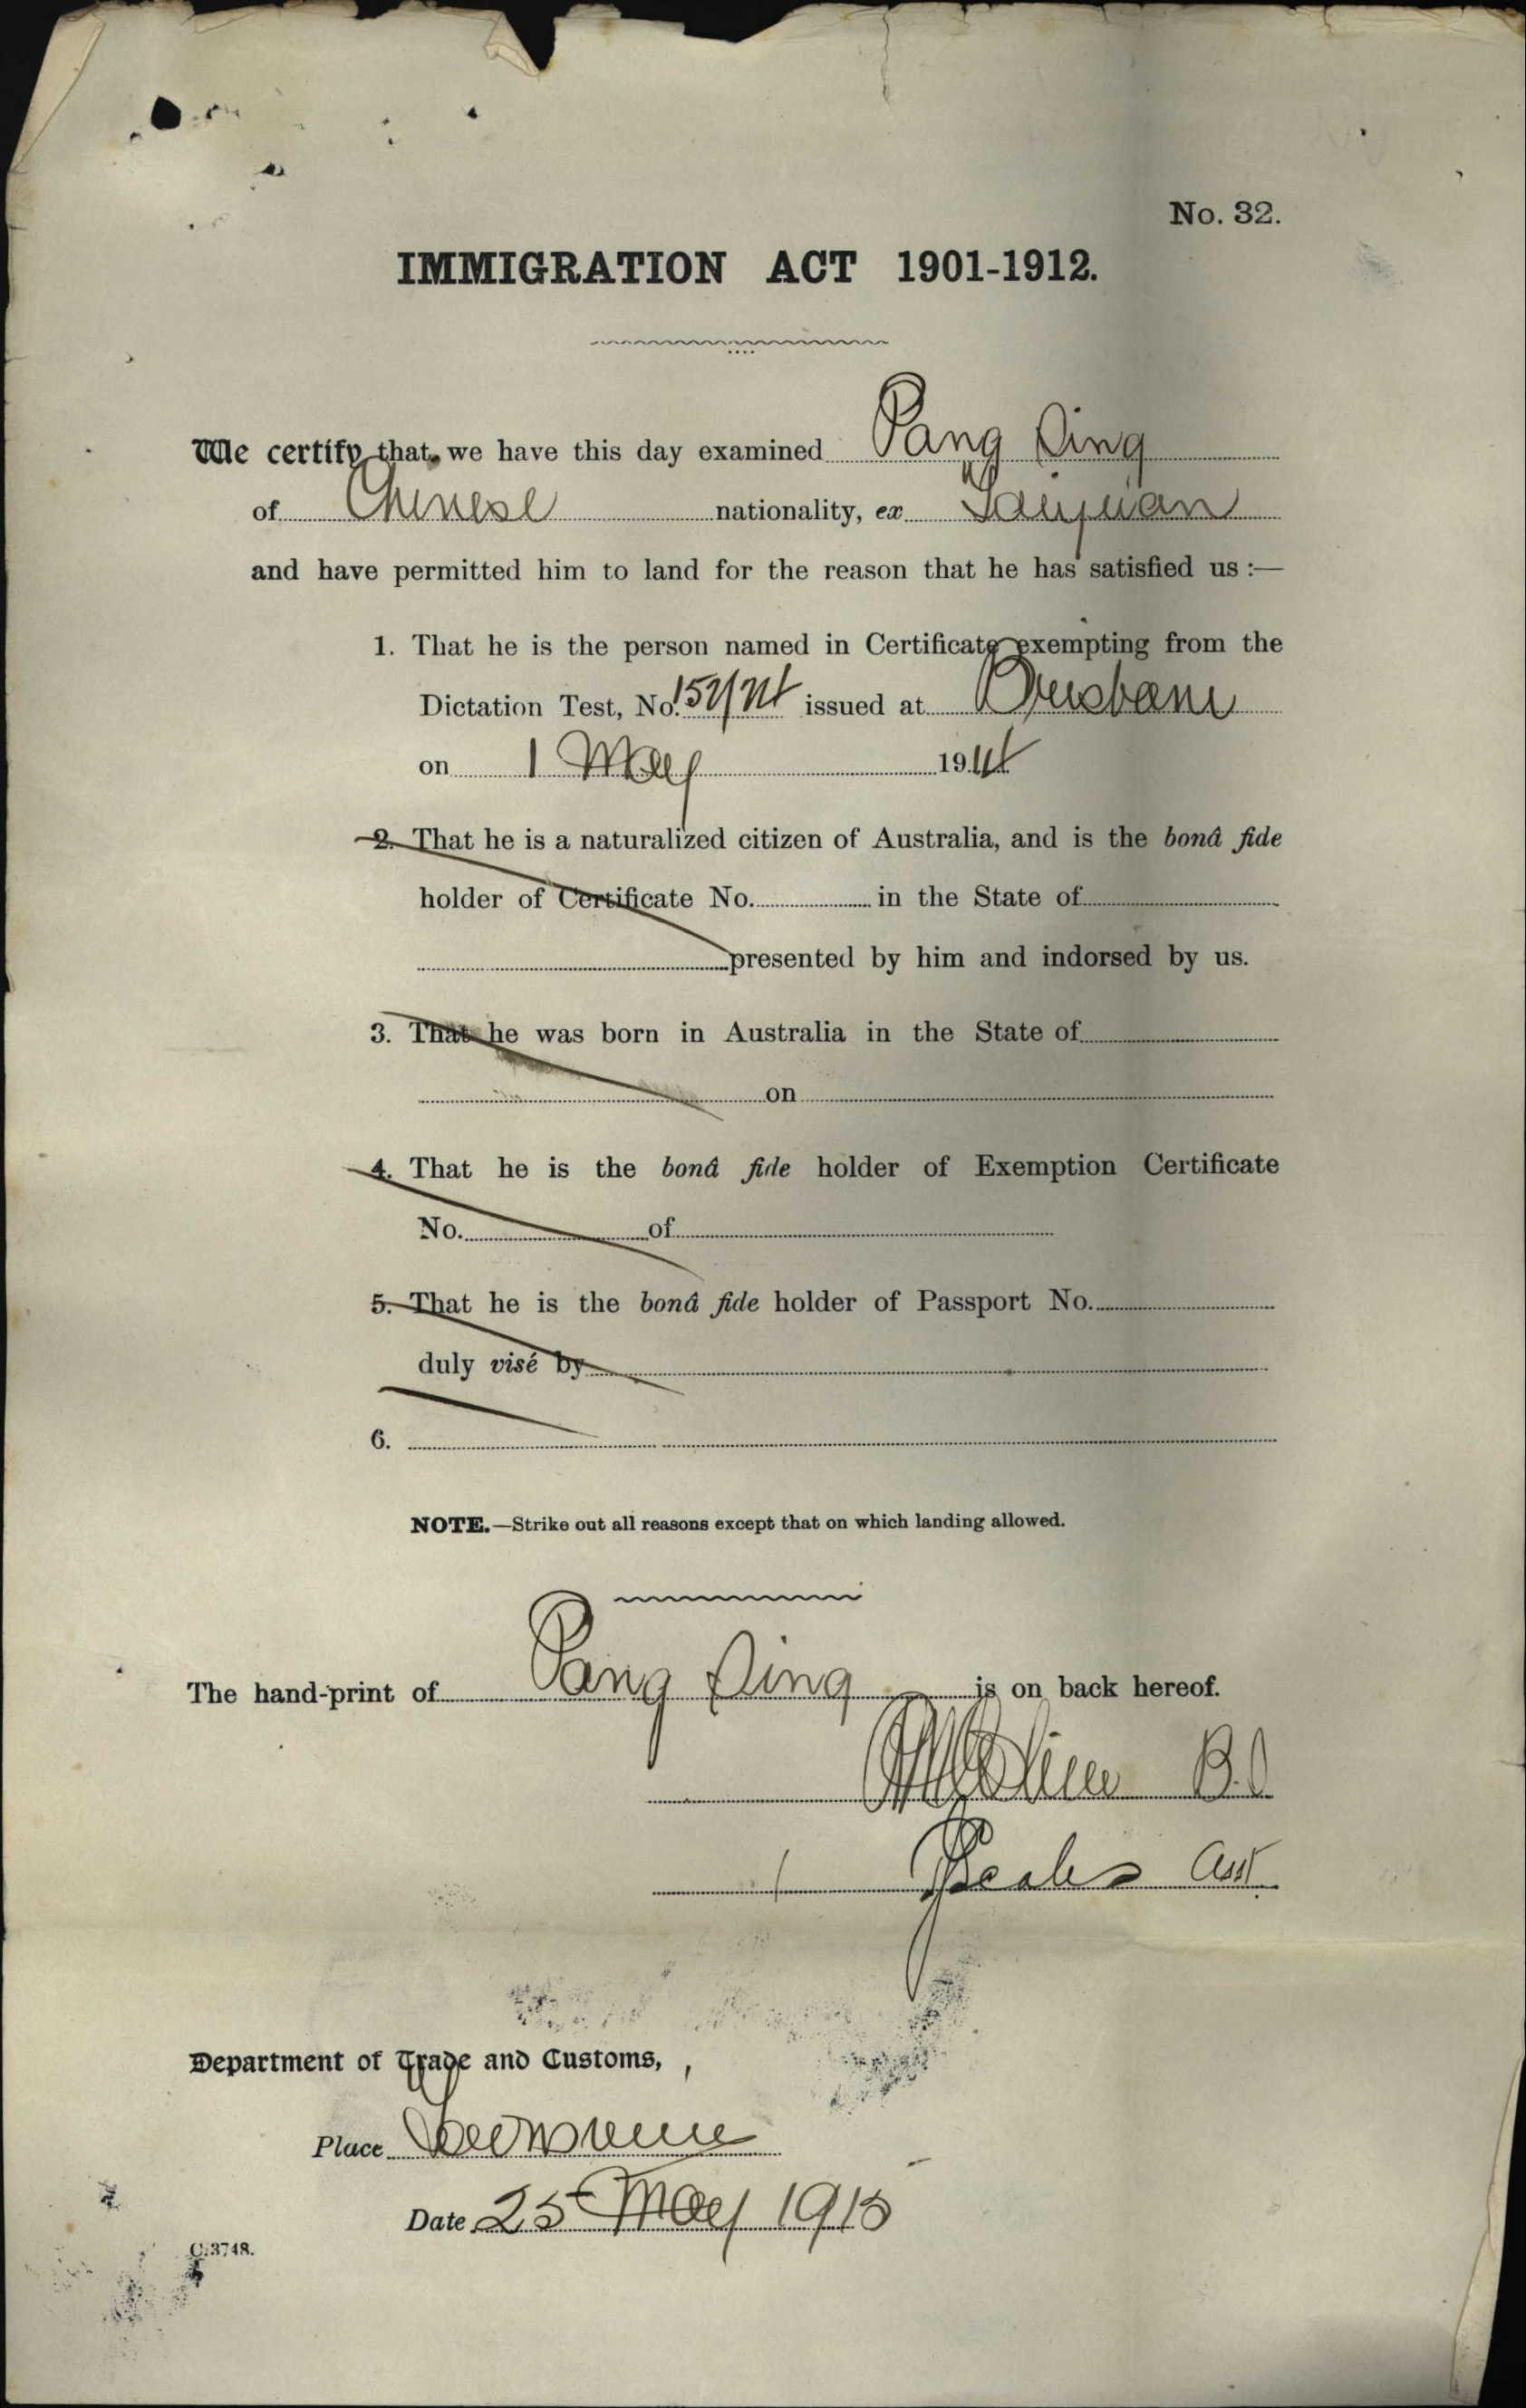 No. 32.
IMMIGRATION ACT 1901-1912.
We certify that we have this day examined Pang Sing
of Chinese nationality, ex Taiyuan
and have permitted him to land for the reason that he has satisfied us :—
1. That he is the person named in Certificate exempting from the
Dictation Test, No. issued at Brisbane
on 1 May 1914
2. That he is a naturalized citizen of Australia, and is the bonâ fide
holder of Certificate No. in the State of
presented by him and indorsed by us.
3. That he was born in Australia in the State of
on
4. That he is the bonâ fide holder of Exemption Certificate
No. of
5. That he is the bonâ fide holder of Passport No.
duly visé by
6.
NOTE.—Strike out all reasons except that on which landing allowed.
The hand-print of Pang Sing is on back hereof.
B.O
Asst.
Department of Trade and Customs,
Place Townsville
Date 25 May 1915
C.3748.